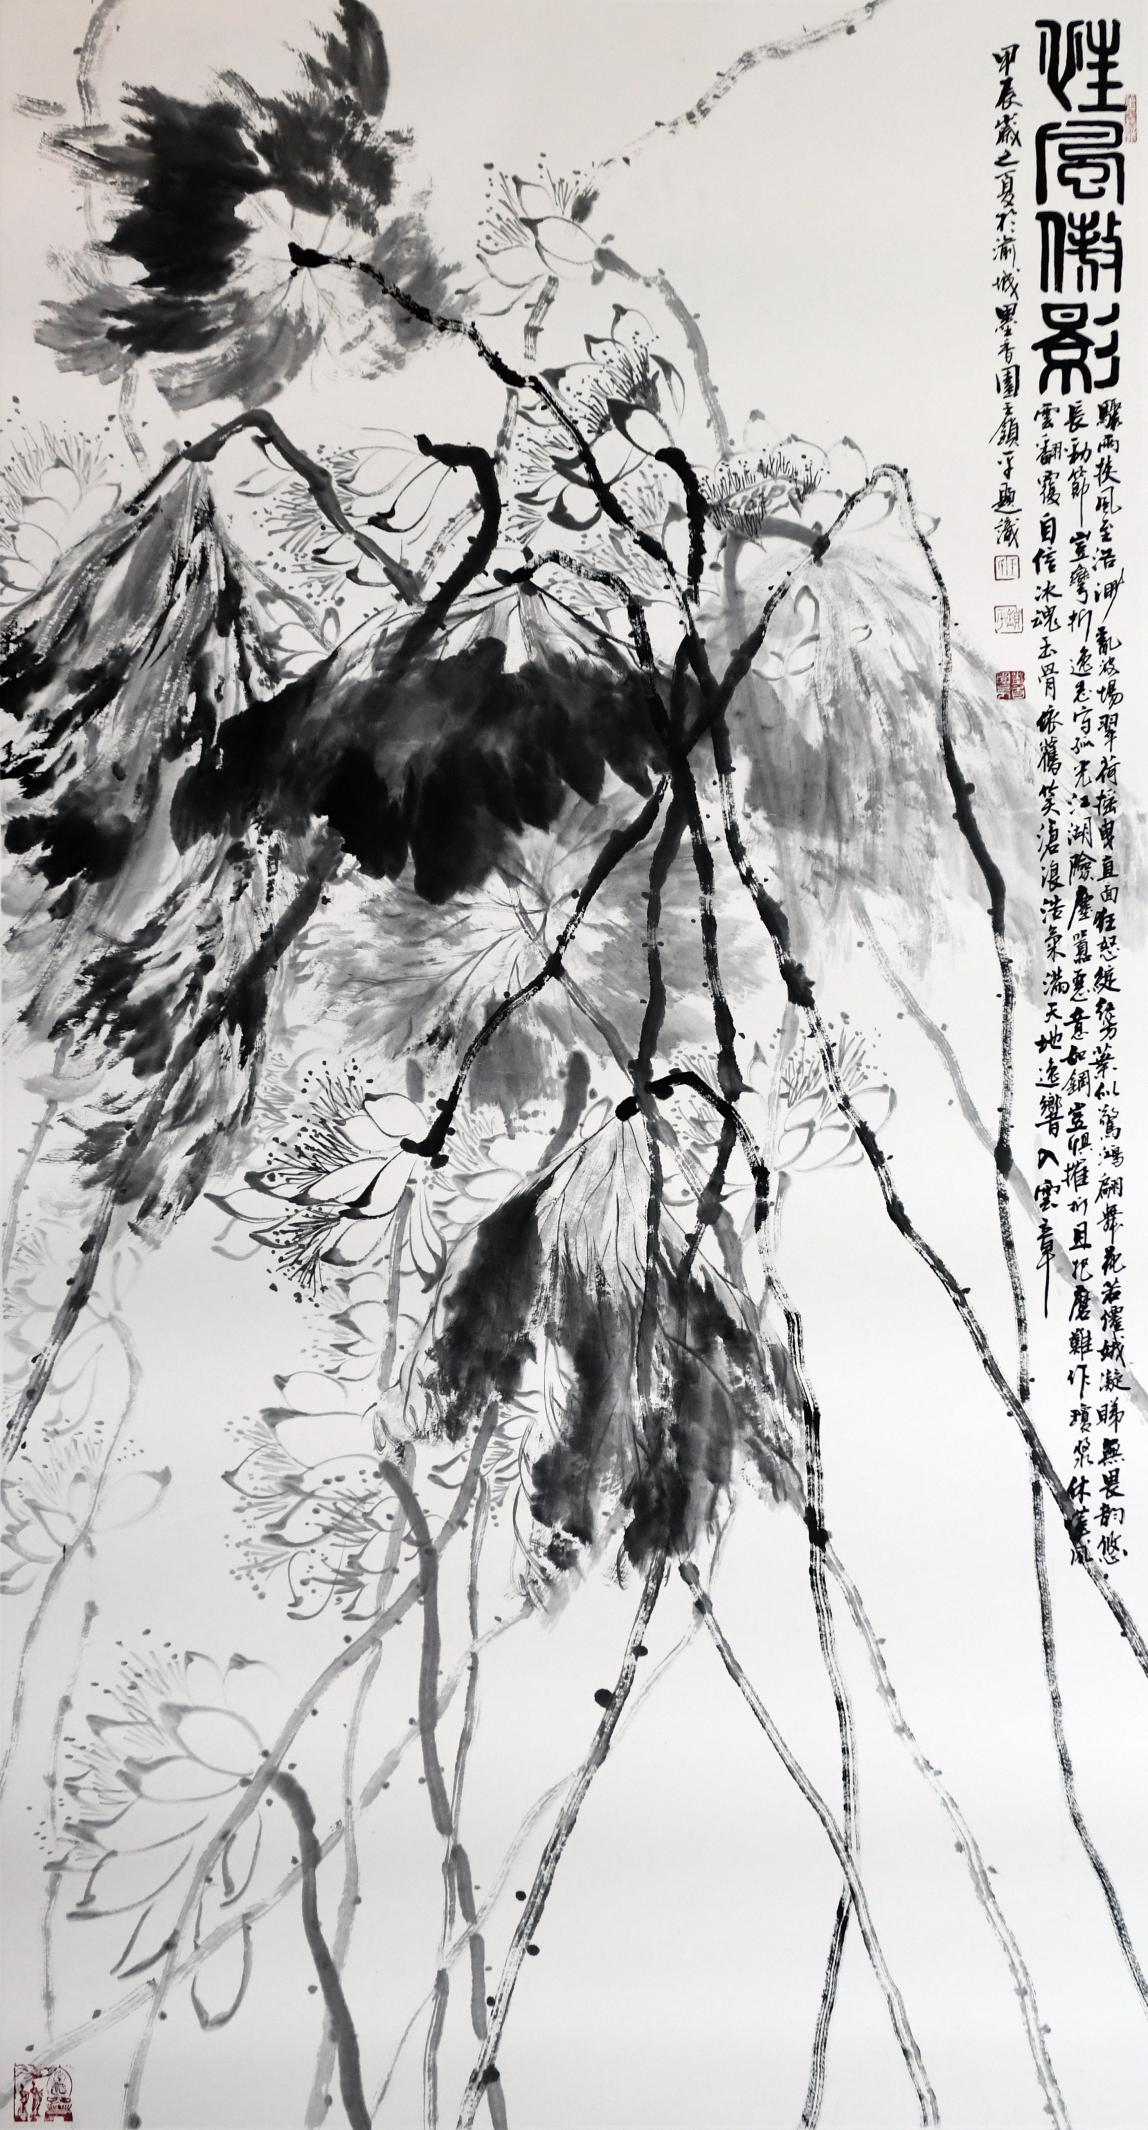 狂風傲影
驟雨挾風至浩渺亂波揚翠荷搖曳直面狂怒綻綠芳葉似驚鴻翩舞花若僊娥凝睇無畏韵悠
長勁節豈彎折逸志寫孤光江湖險塵囂惡意如鋼豈懼摧折且把磨難作瓊漿休管風
雲翻覆自信冰魂玉骨依舊笑滄浪浩氣滿天地逸響入雲章
甲辰歲之夏於渝城墨香園王鎖平題識